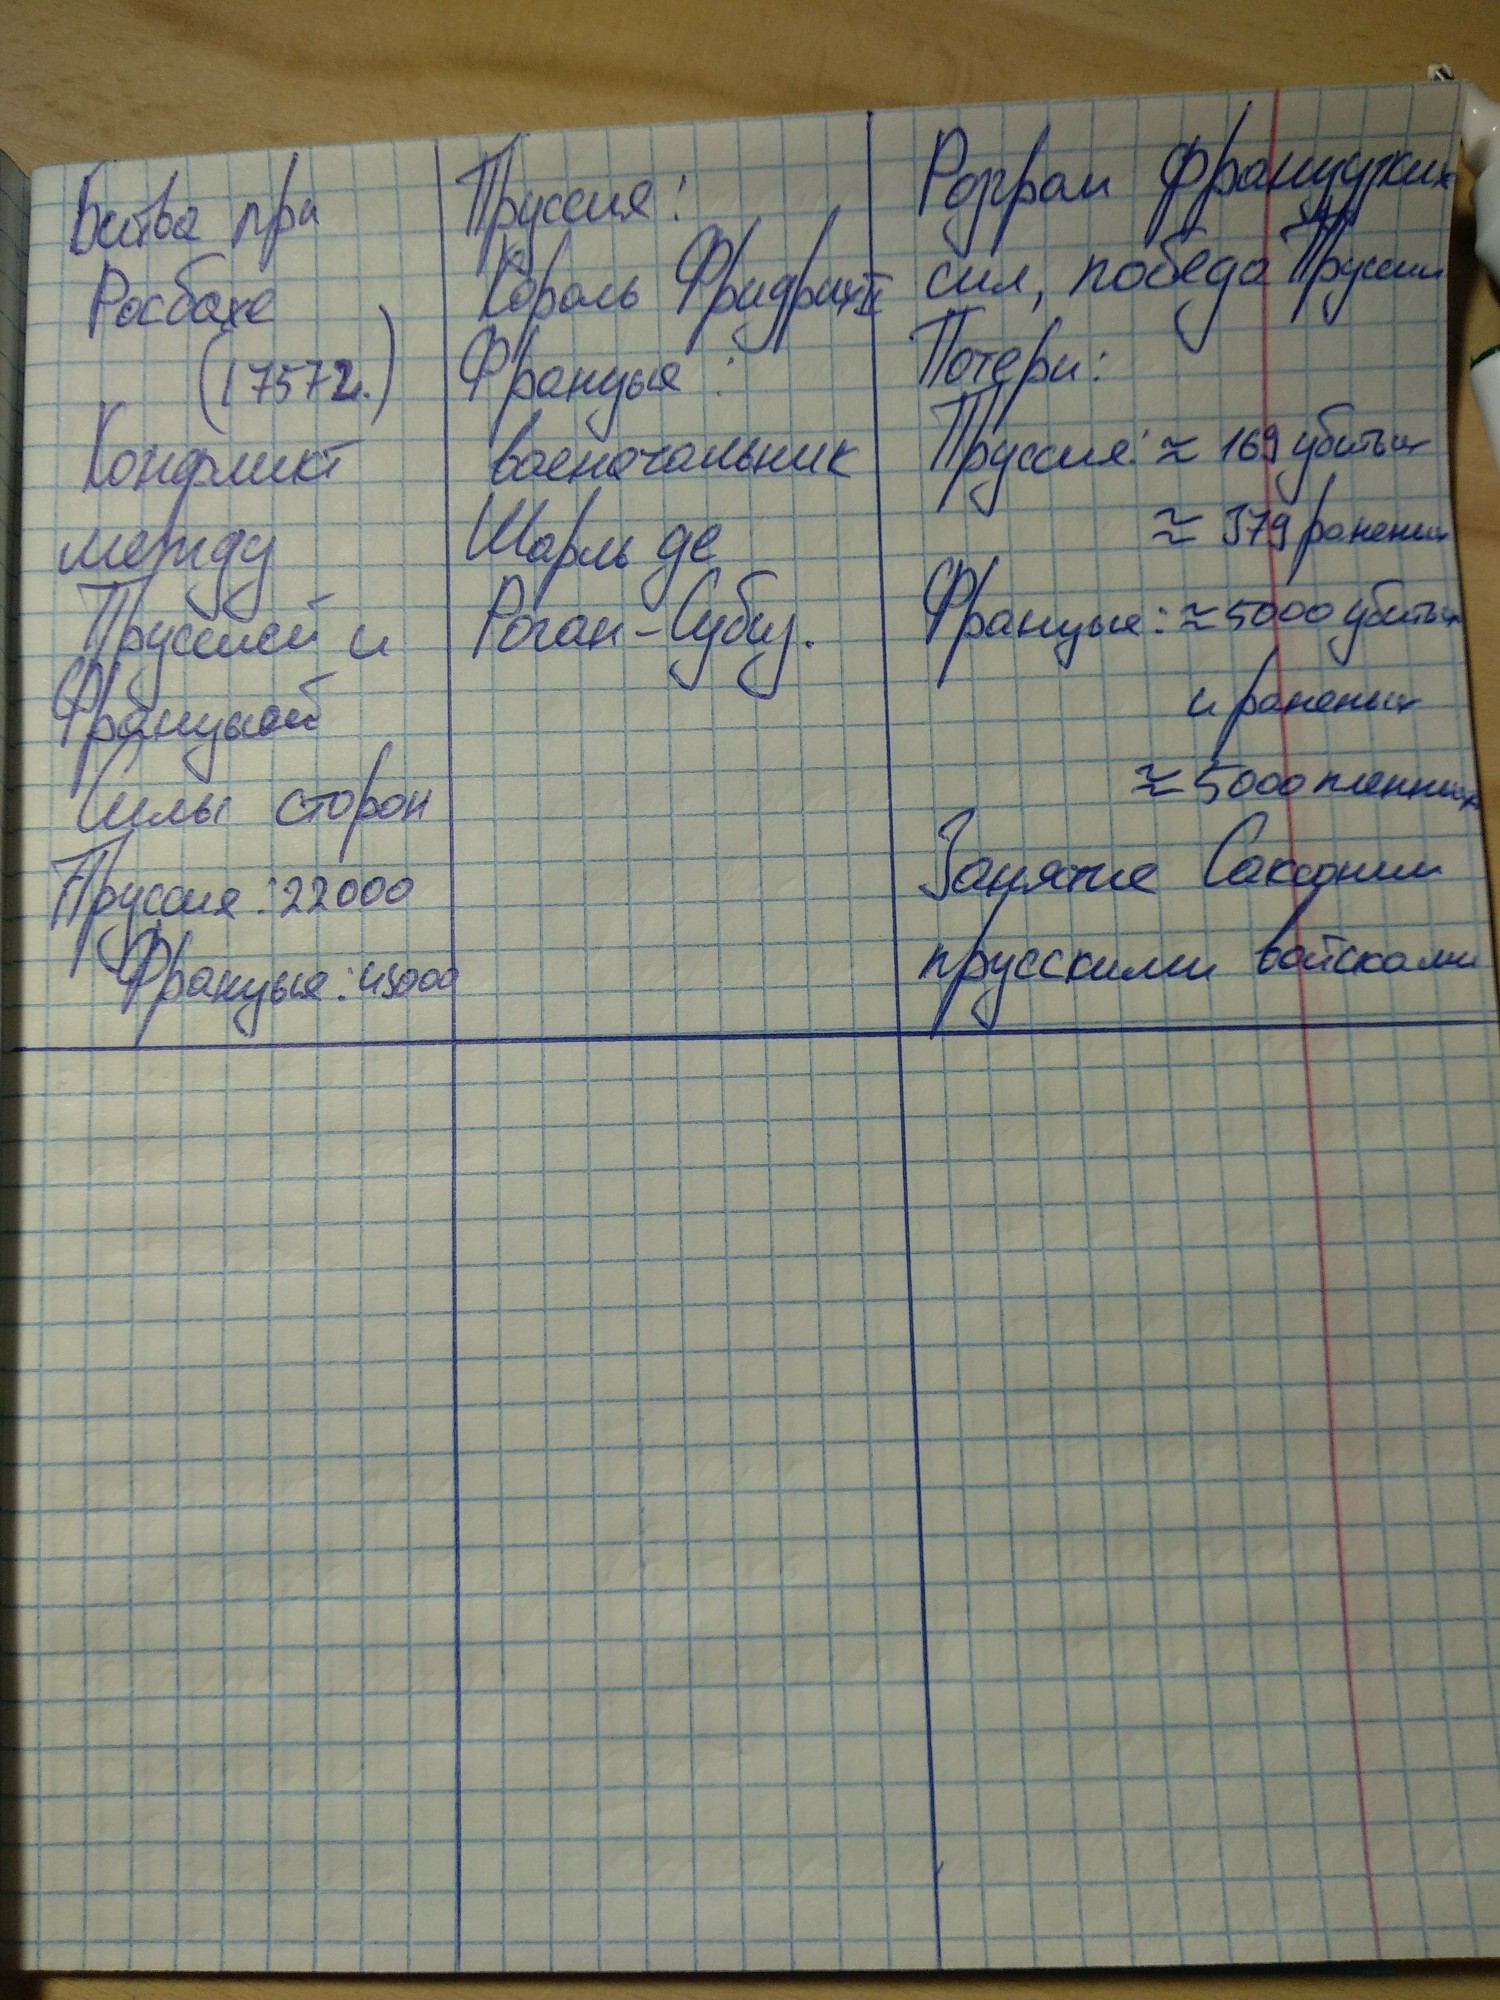 Битва при
Росбахе
(1757г.)
Конфликт
между
Пруссией и
Францией
Силы сторон
Пруссия: 22000
Франция: 45000
Пруссия:
Король Фридрих II
Франция:
военачальник
Шарль де
Роган-Субиз.
Разгром французких
сил, победа Пруссии
Потери:
Пруссия: ≈ 169 убитых
≈ 379 раненых
Франция: ≈ 5000 убитых
и раненых
≈ 5000 пленных
Занятие Саксонии
прусскими войсками